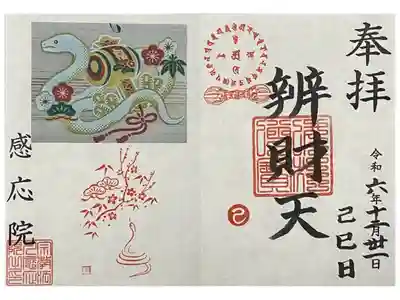 奉拝
令和六年十二月廿一
己巳日
辨財天
巳
感応院